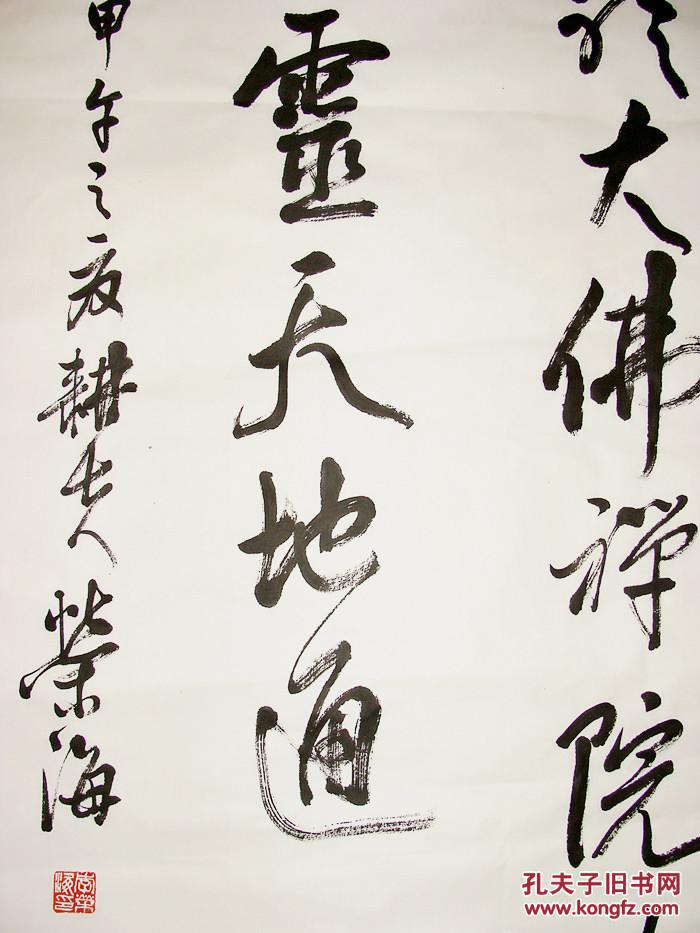 大佛禅院
靈天地通
甲午之夏耕
荣海
孔夫子旧书网
www.kongfz.com